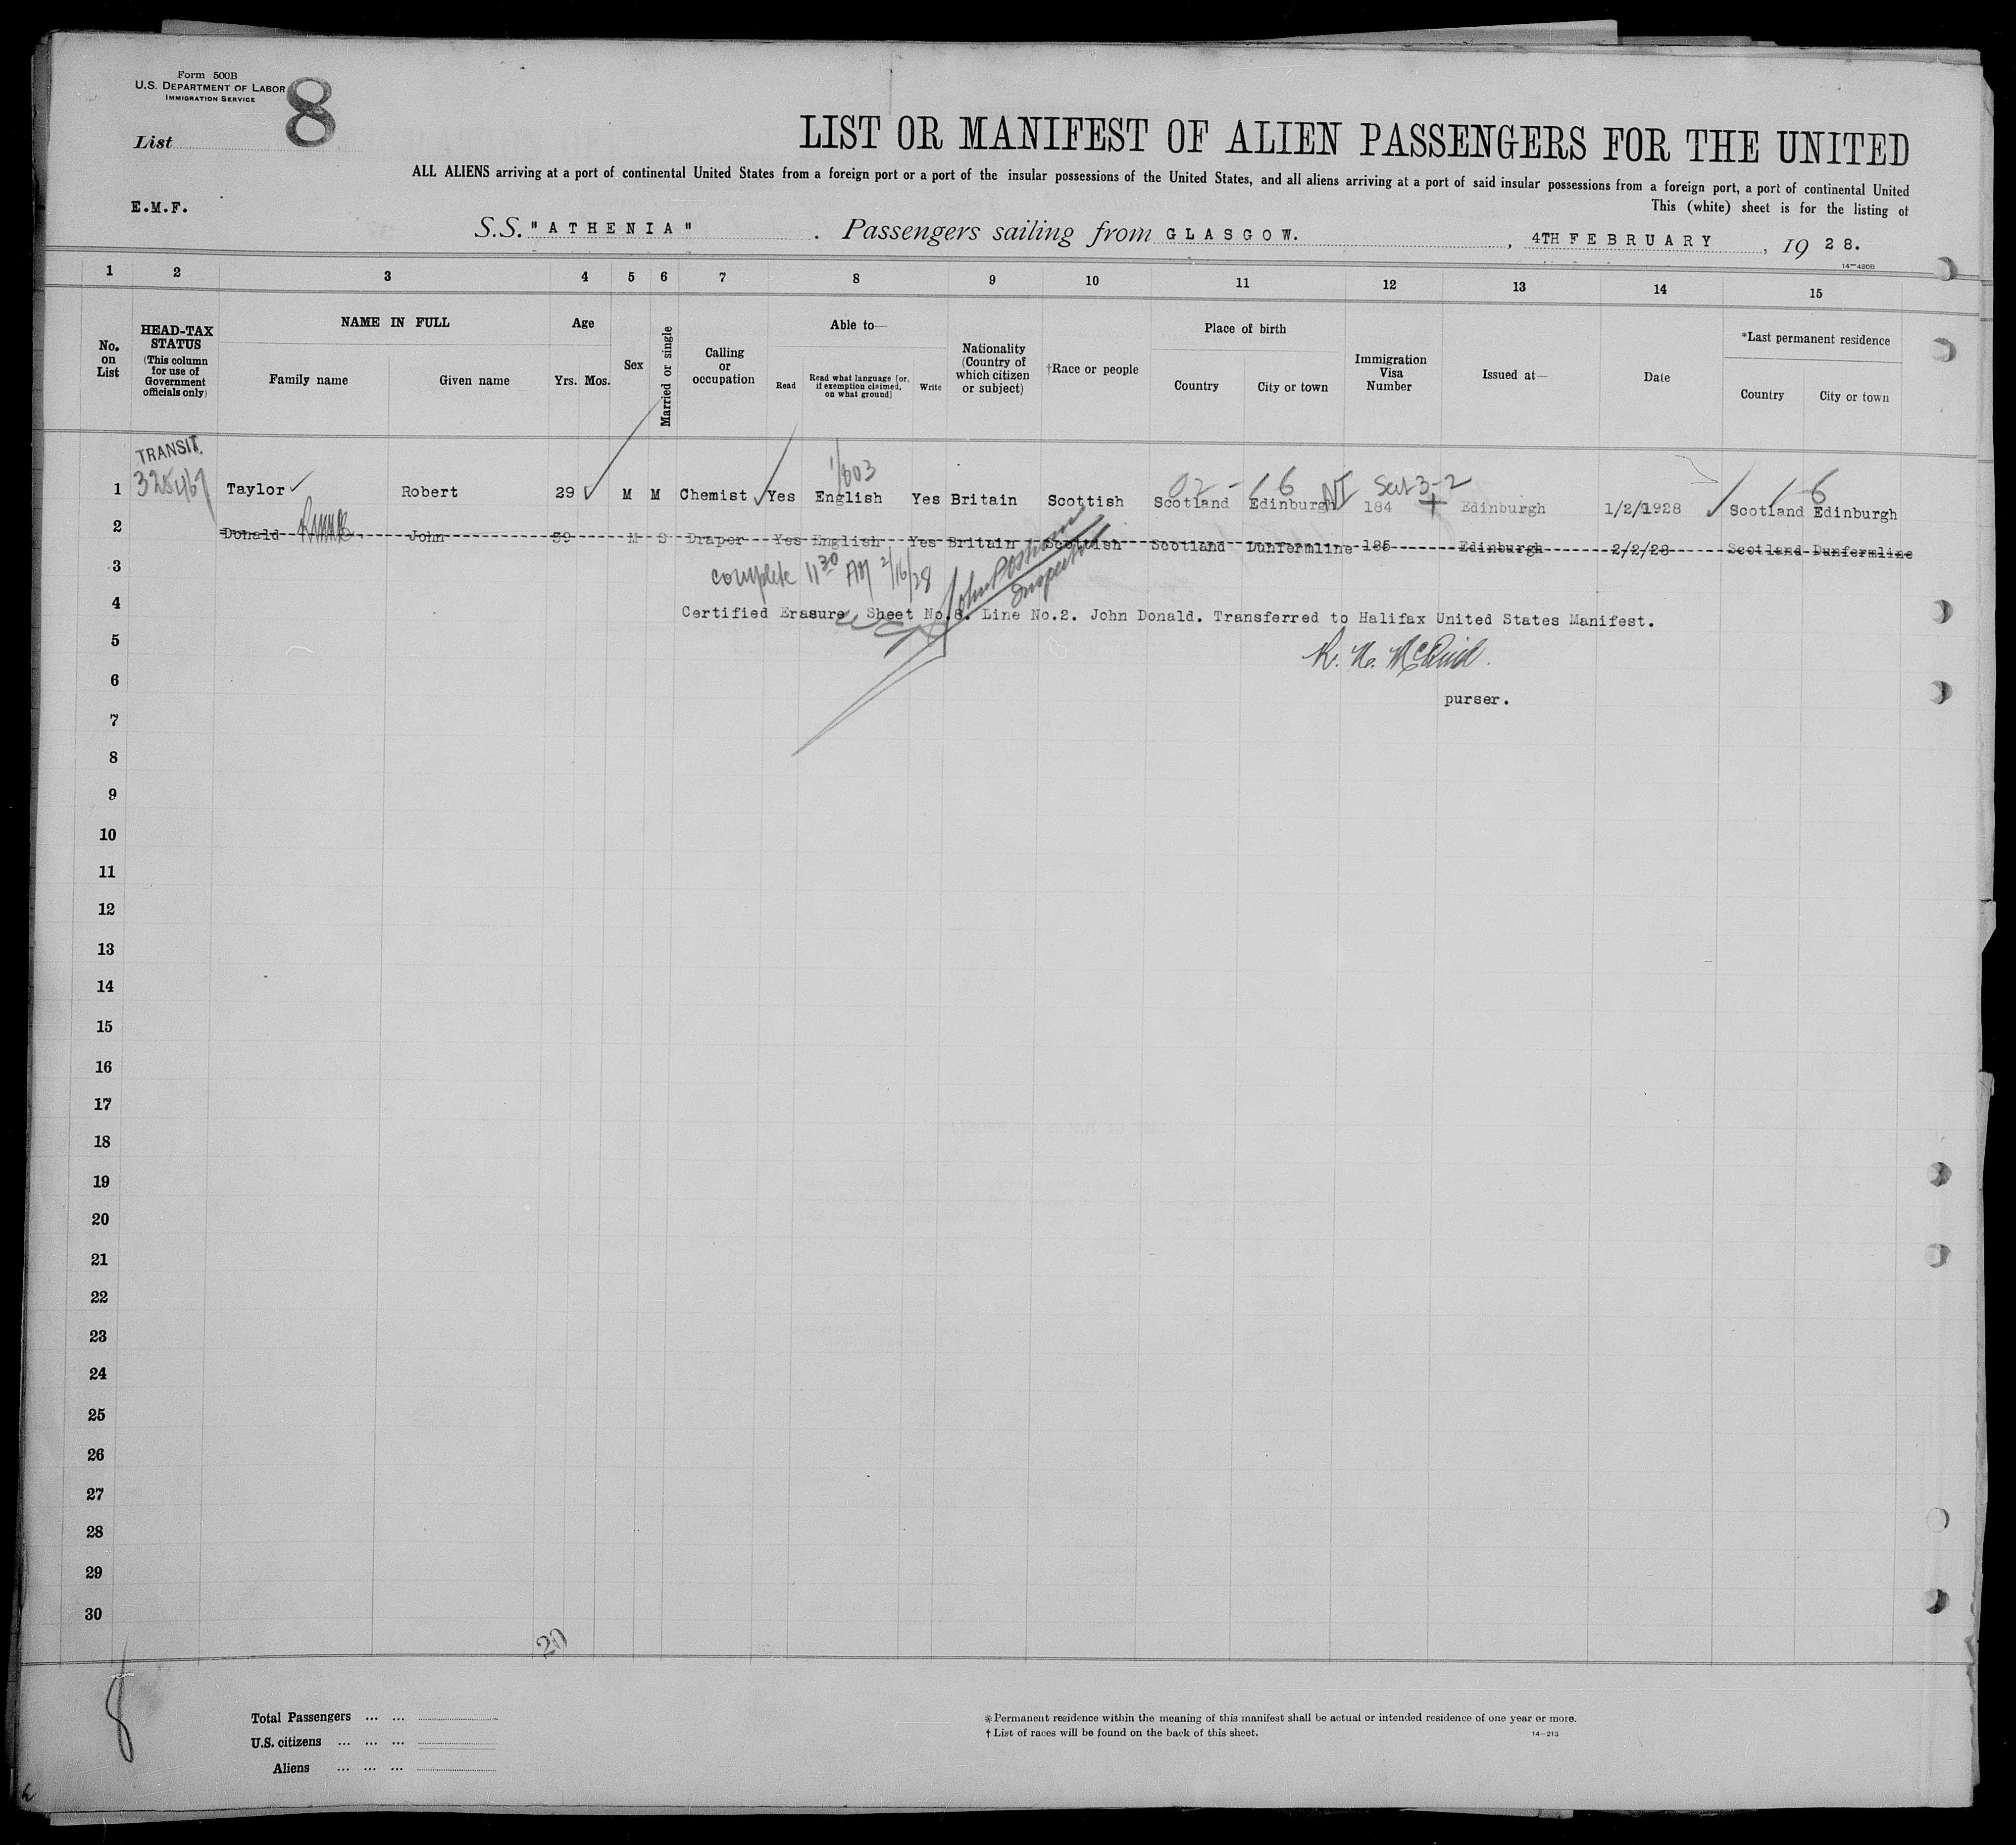 Form 500B
U.S. DEPARTMENT OF LABOR
IMMIGRATION SERVICE
List 8
LIST OR MANIFEST OF ALIEN PASSENGERS FOR THE UNITED
ALL ALIENS arriving at a port of continental United States from a foreign port or a port of the insular possessions of the United States, and all aliens arriving at a port of said insular possessions from a foreign port, a port of continental United
This (white) sheet is for the listing of
E.M.F.
S.S. "ATHENIA" . Passengers sailing from GLASGOW. , 4TH FEBRUARY , 1928.
14—430B
1 2 3 4 5 6 7 8 9 10 11 12 13 14 15
No. on List
HEAD-TAX STATUS (This column for use of Government officials only)
NAME IN FULL
Family name Given name
Age
Yrs. Mos.
Sex
Married or single
Calling or occupation
Able to—
Read Read what language [or, if exemption claimed, on what ground] Write
Nationality (Country of which citizen or subject)
†Race or people
Place of birth
Country City or town
Immigration Visa Number
Issued at—
Date
*Last permanent residence
Country City or town
TRANSIT
1/603
02 - 16 NI 3-2 1-6
1 Taylor Robert 29 M M Chemist Yes English Yes Britain Scottish Scotland Edinburgh 184 Edinburgh 1/2/1928 Scotland Edinburgh
2 Donald John 39 M S Draper Yes English Yes Britain Scottish Scotland Dunfermline 185 Edinburgh 2/2/28 Scotland Dunfermline
3
complete 11 30 AM 2/16/28
Inspector
4
Certified Erasure Sheet No.8. Line No.2. John Donald. Transferred to Halifax United States Manifest.
5
6
purser.
7
8
9
10
11
12
13
14
15
16
17
18
19
20
21
22
23
24
25
26
27
28
29
30
20
8
Total Passengers ... ...
U.S. citizens ... ... ...
Aliens ... ... ...
*Permanent residence within the meaning of this manifest shall be actual or intended residence of one year or more.
†List of races will be found on the back of this sheet.
14—213